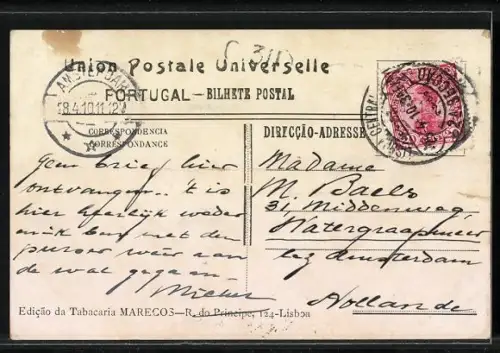 Union Postale Universelle
PORTUGAL - BILHETE POSTAL
AMSTERDAM
18.4.10.11.12V
CENTRAL
CORRESPONDENCIA
CORRESPONDANCE
DIRECÇÃO-ADRESSE
Geen brief hier
ontvangen. 't is
hier heerlijk weder
ik ben met den
weer aan
de wal gegaan
Michel
Madame
M. Baels
31, Middenweg,
Watergraafsmeer
bez Amsterdam
Hollande
Edição da Tabacaria MARECOS—R. do Principe, 124-Lisboa